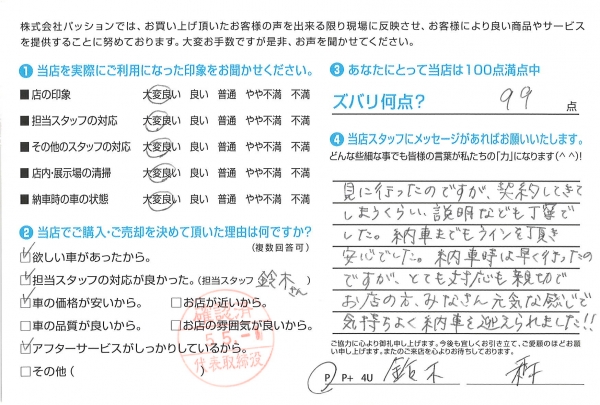 株式会社パッションでは、お買い上げ頂いたお客様の声を出来る限り現場に反映させ、お客様により良い商品やサービス
を提供することに努めております。大変お手数ですが是非、お声を聞かせてください。
❶ 当店を実際にご利用になった印象をお聞かせください。
■ 店の印象 大変良い 良い 普通 やや不満 不満
■ 担当スタッフの対応 大変良い 良い 普通 やや不満 不満
■ その他のスタッフの対応 大変良い 良い 普通 やや不満 不満
■ 店内・展示場の清掃 大変良い 良い 普通 やや不満 不満
■ 納車時の車の状態 大変良い 良い 普通 やや不満 不満
❷ 当店でご購入・ご売却を決めて頂いた理由は何ですか?
(複数回答可)
☑欲しい車があったから。
☑担当スタッフの対応が良かった。(担当スタッフ 鈴木さん
☑車の価格が安いから。 □お店が近いから。
□車の品質が良いから。 □お店の雰囲気が良いから。
☑アフターサービスがしっかりしているから。
□その他 ( )
確認済
5.5.-1
代表取締役
❸ あなたにとって当店は100点満点中
ズバリ何点? 99 点
❹ 当店スタッフにメッセージがあればお願いいたします。
どんな些細な事でも皆様の言葉が私たちの「力」になります(^^)!
見に行ったのですが、契約してきて
しまうくらい、説明なども丁寧で
した。納車までもラインを頂き
安心でした。納車時は早く行ったの
ですが、とても対応も親切で
お店の方、みなさん元気な感じで
気持ちよく納車を迎えられました!!
ご協力に心より御礼申し上げます。今後も宜しくお引き立て、ご愛顧のほどお願
い申し上げます。またのご来店を心よりお待ちしております。
P P+ 4U 鈴木